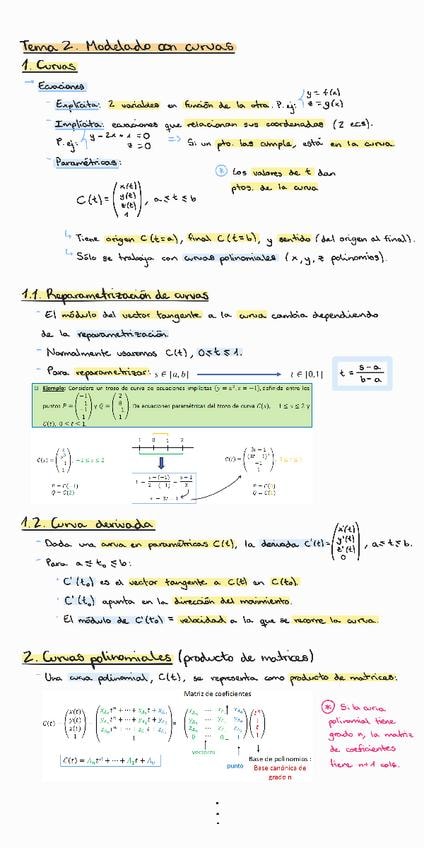 Tema 2. Modelado con curvas
1. Curvas
→ Ecuaciones
- Explícita: 2 variables en función de la otra. P. ej: { y = f(x)
z = g(x)
- Implícita: ecuaciones que relacionan sus coordenadas (2 ecs).
P. ej: { y - 2x + 1 = 0
z = 0 => Si un pto. las cumple, está en la curva
- Paramétricas:
* Los valores de t dan
ptos. de la curva
C(t) = (x(t) y(t) z(t) 1), a ≤ t ≤ b
↳ Tiene origen C(t=a), final C(t=b), y sentido (del origen al final).
↳ Sólo se trabaja con curvas polinomiales (x, y, z polinomios).
1.1. Reparametrización de curvas
- El módulo del vector tangente a la curva cambia dependiendo
de la reparametrización.
- Normalmente usaremos C(t), 0 ≤ t ≤ 1.
- Para reparametrizar: s ∈ [a,b] → t ∈ [0,1] t = (s-a)/(b-a)
Ejemplo: Considera un trozo de curva de ecuaciones implícitas {y = x², z = -1}, definida entre los
puntos P = (-1 1 -1 1) y Q = . De ecuaciones paramétricas del trozo de curva C(s), -1 ≤ s ≤ 2 y
C(t), 0 ≤ t ≤ 1
P = C(-1)
Q = C(2)
P = C(0)
Q = C(1)
1.2. Curva derivada
- Dada una curva en paramétricas C(t), la derivada C'(t) = (x'(t) y'(t) z'(t) 0), a ≤ t ≤ b.
- Para a ≤ t₀ ≤ b:
· C'(t₀) es el vector tangente a C(t) en C(t₀).
· C'(t₀) apunta en la dirección del movimiento.
· El módulo de C'(t₀) = velocidad a la que se recorre la curva.
2. Curvas polinomiales (producto de matrices)
- Una curva polinomial, C(t), se representa como producto de matrices:
Matriz de coeficientes
vectores
punto
Base de polinomios:
Base canónica de
grado n
C(t) = Aₙtⁿ + ⋯ + A₁t + A₀
* Si la curva
polinomial tiene
grado n, la matriz
de coeficientes
tiene n+1 cols.